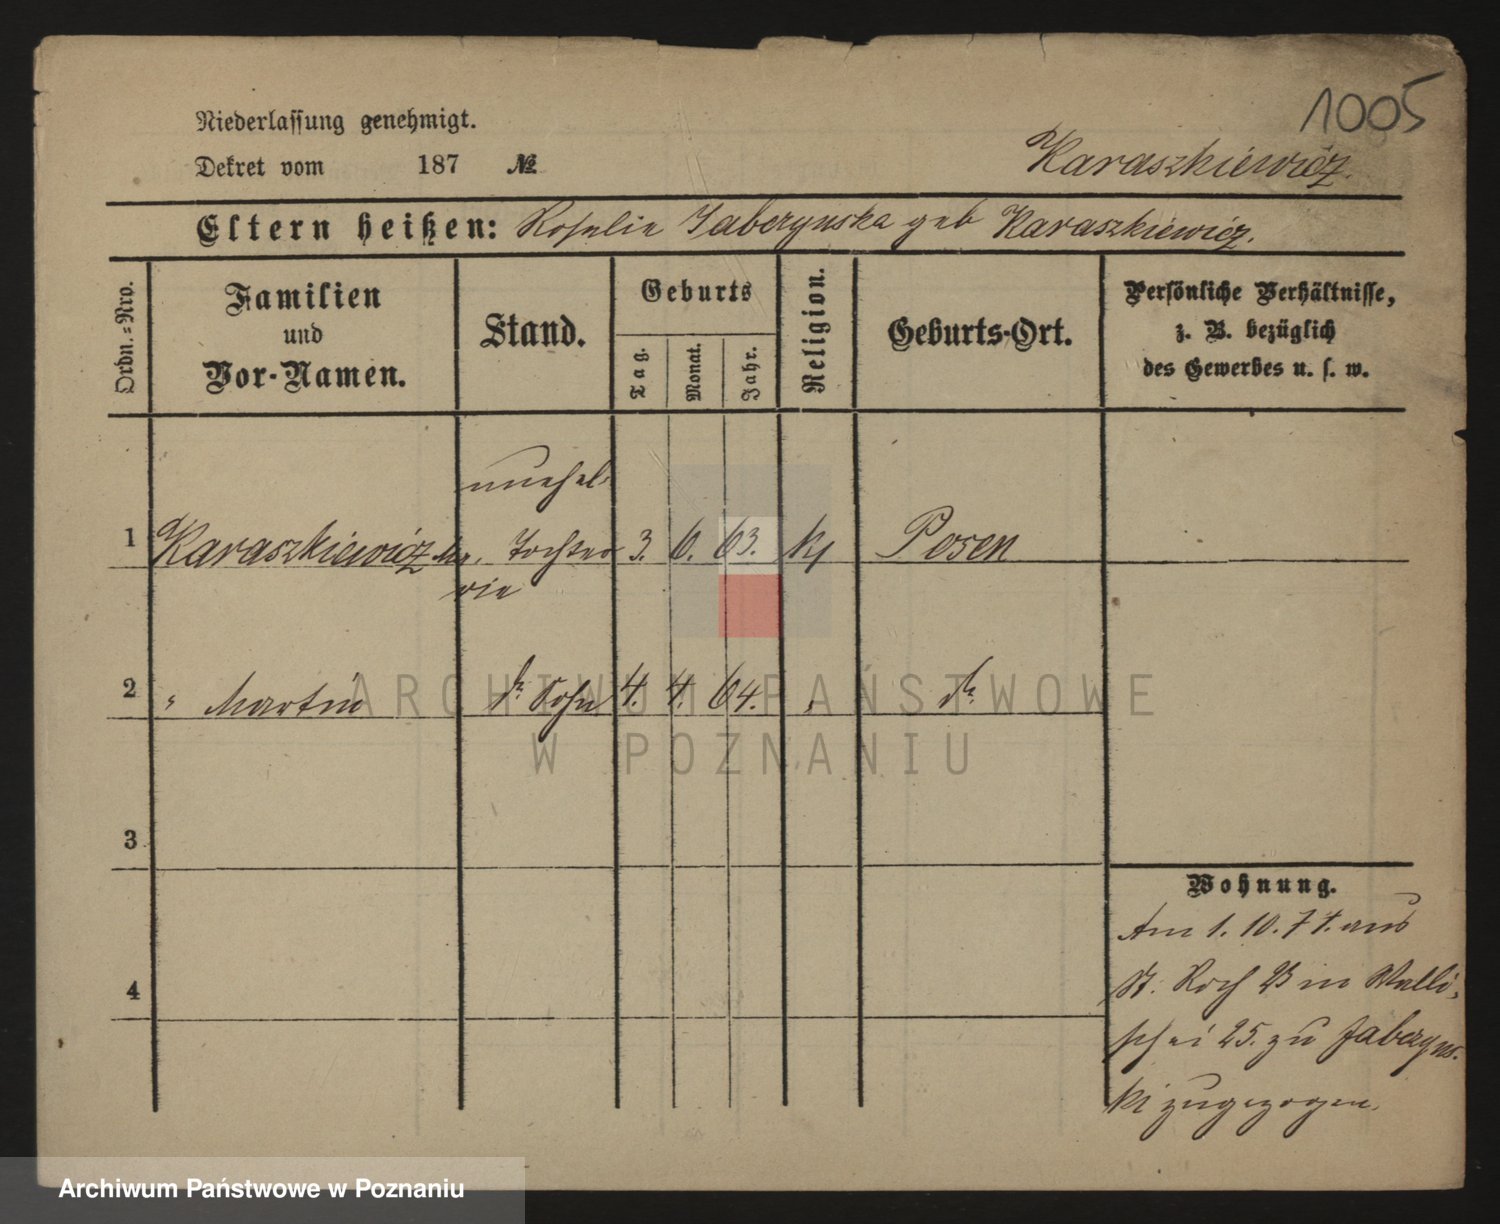 1005
Niederlassung genehmigt.
Dekret vom 187 №
Karaszkiewicz.
Eltern heißen: Rosalie Jaberzynska geb Karaszkiewicz.
Ordn.-Nro.
Familien
und
Vor-Namen.
Stand.
Geburts
Tag.
Monat.
Jahr.
Religion.
Geburts-Ort.
Persönliche Verhältnisse,
z. B. bezüglich
des Gewerbes u. s. w.
unehel.
1 Karaszkiewicz Ma- Tochter 3. 6. 63. kj Posen
rie
2 " Martin do Sohn 4. 4. 64. " do
3
4
Wohnung.
Am 1. 10. 71. aus
St. Roch 23 in Walli-
schei 25. zu Jaberzyns-
ki zugezogen.
ARCHIWUM PAŃSTWOWE
W POZNANIU
Archiwum Państwowe w Poznaniu